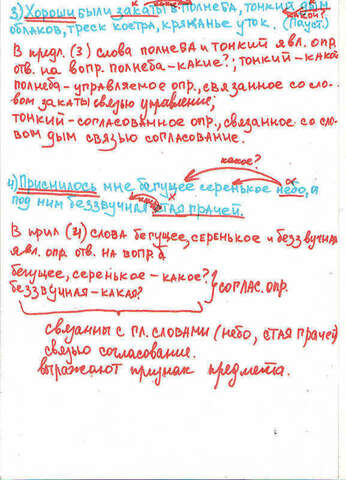 какие?
какой?
3) Хороши были закаты в полнеба, тонкий дым
облаков, треск костра, кряканье уток. (Пауст.)
В предл. (3) слова полнеба и тонкий явл. опр
отв. на вопр. полнеба – какие?; тонкий – какой
полнеба – управляемое опр., связанное со сло-
вом закаты связью управление;
тонкий – согласованное опр., связанное со сло-
вом дым связью согласование.
какое?
4) Приснилось мне бегущее серенькое небо, а
под ним беззвучная стая грачей.
В прил (4) слова бегущее, серенькое и беззвучная
явл. опр. отв. на вопр
бегущее, серенькое – какое?
беззвучная – какая? } соглас. опр.
связанны с гл. словами (небо, стая грачей)
связью согласование.
выражают признак предмета.